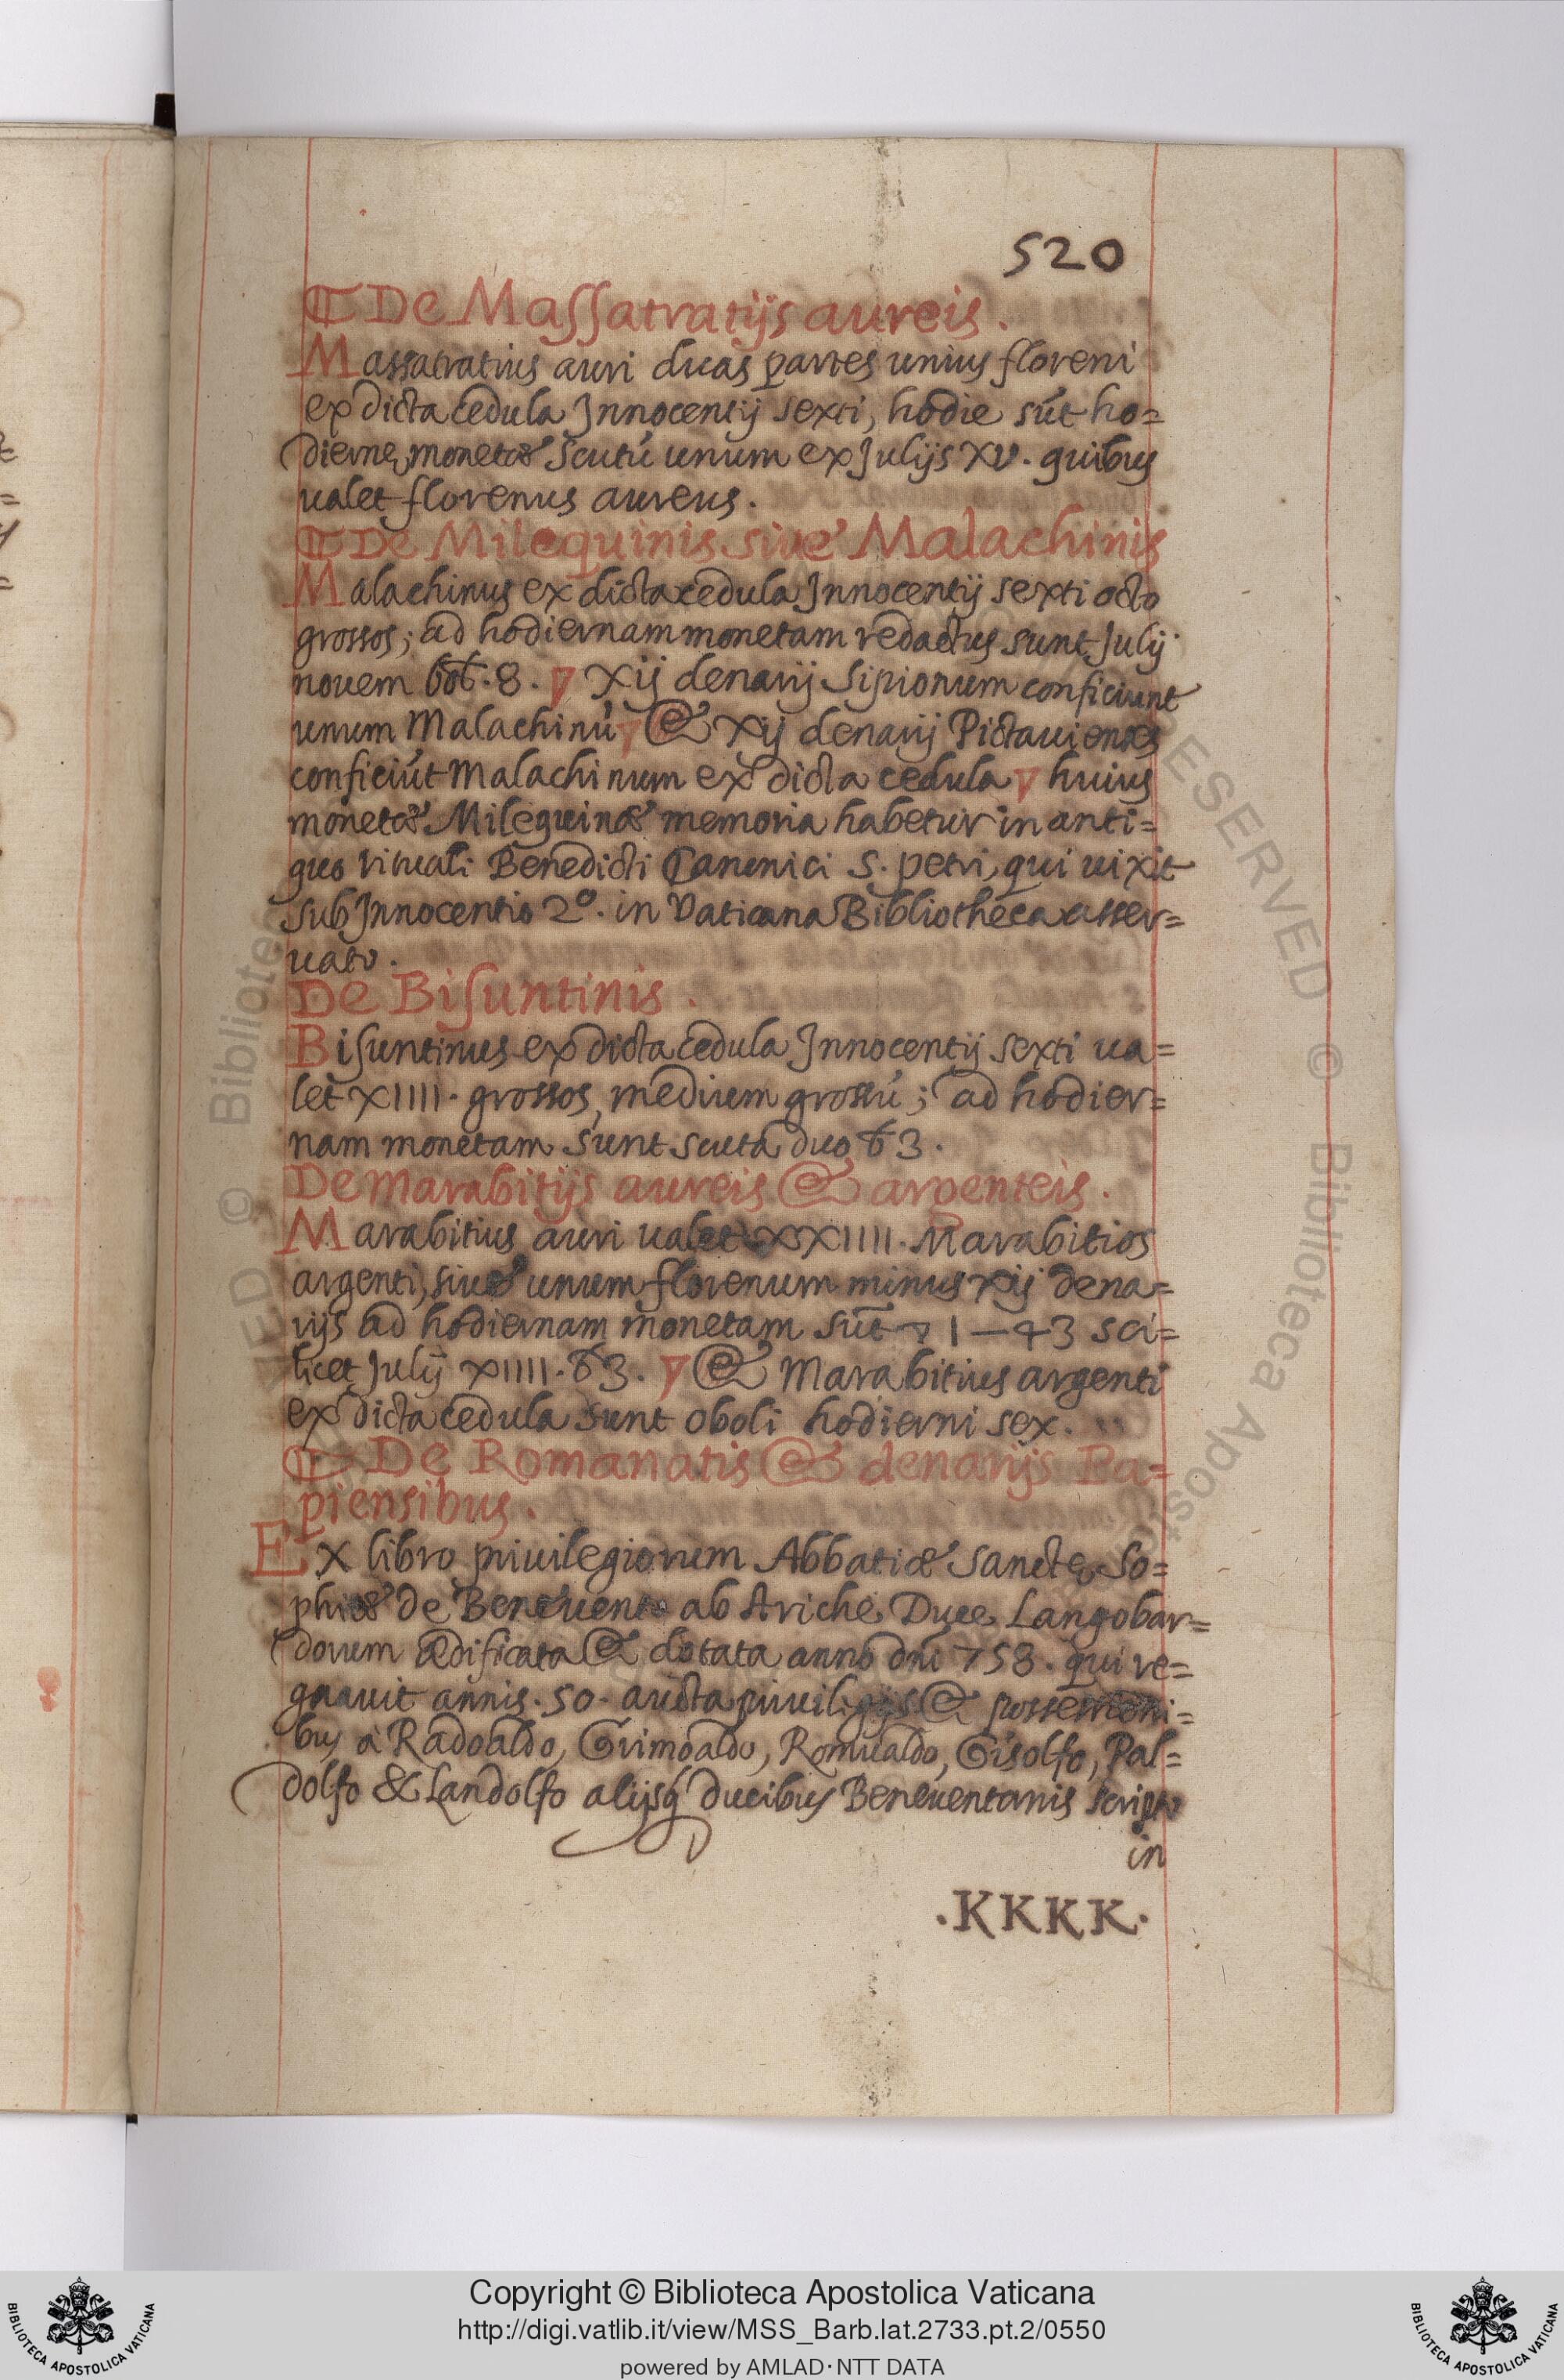 520
De Massatratijs aureis.
Massatratius auri duas partes unius floreni
ex dicta cedula Innocentij sexti, hodie sūt ho=
diernę monetæ Scutū unum ex Julijs XV. quibus
ualet florenus aureus.
De Milequinis siue Malachinis
Malachinus ex dicta cedula Innocentij sexti octo
grossos; ad hodiernam monetam redactus sunt Julij
nouem bol. 8. Xij denarij Sipionum conficiunt
unum Malachinū & Xij denarij Pictauienses
conficiūt Malachinum ex dicta cedula huius
monetæ Milequinæ memoria habetur in anti=
quo rituali Benedicti Canonici S. petri, qui uixit
sub Innocentio 2º. in Vaticana Bibliotheca asser=
uato.
De Bisuntinis.
Bisuntinus ex dicta cedula Innocentij sexti ua=
let XIIII. grossos, medium grossū; ad hodier=
nam monetam sunt scuta duo 63.
De Marabitijs aureis & argenteis.
Marabitius auri ualet XXIIII. Marabitios
argenti, siue unum florenum minus xij dena=
rijs ad hodiernam monetam sūt 1—43 sci=
licet Julij XIIII. 63. & Marabitius argenti
ex dicta cedula sunt oboli hodierni sex.
De Romanatis & denarijs Pa=
piensibus.
Ex libro priuilegiorum Abbatiæ Sanctę So=
phiæ de Beneuento ab Ariche Duce Langobar=
dorum ædificata & dotata anno dnī 758. qui re=
gnauit annis. 50. aucta priuilegijs & possessioni=
bus à Radoaldo, Grimoaldo, Romualdo, Gisolfo, Pal=
dolfo & Landolfo alijsq ducibus Beneuentanis scripto
in
.KKKK.
Copyright © Biblioteca Apostolica Vaticana
http://digi.vatlib.it/view/MSS_Barb.lat.2733.pt.2/0550
powered by AMLAD·NTT DATA
BIBLIOTECA APOSTOLICA VATICANA
BIBLIOTECA APOSTOLICA VATICANA